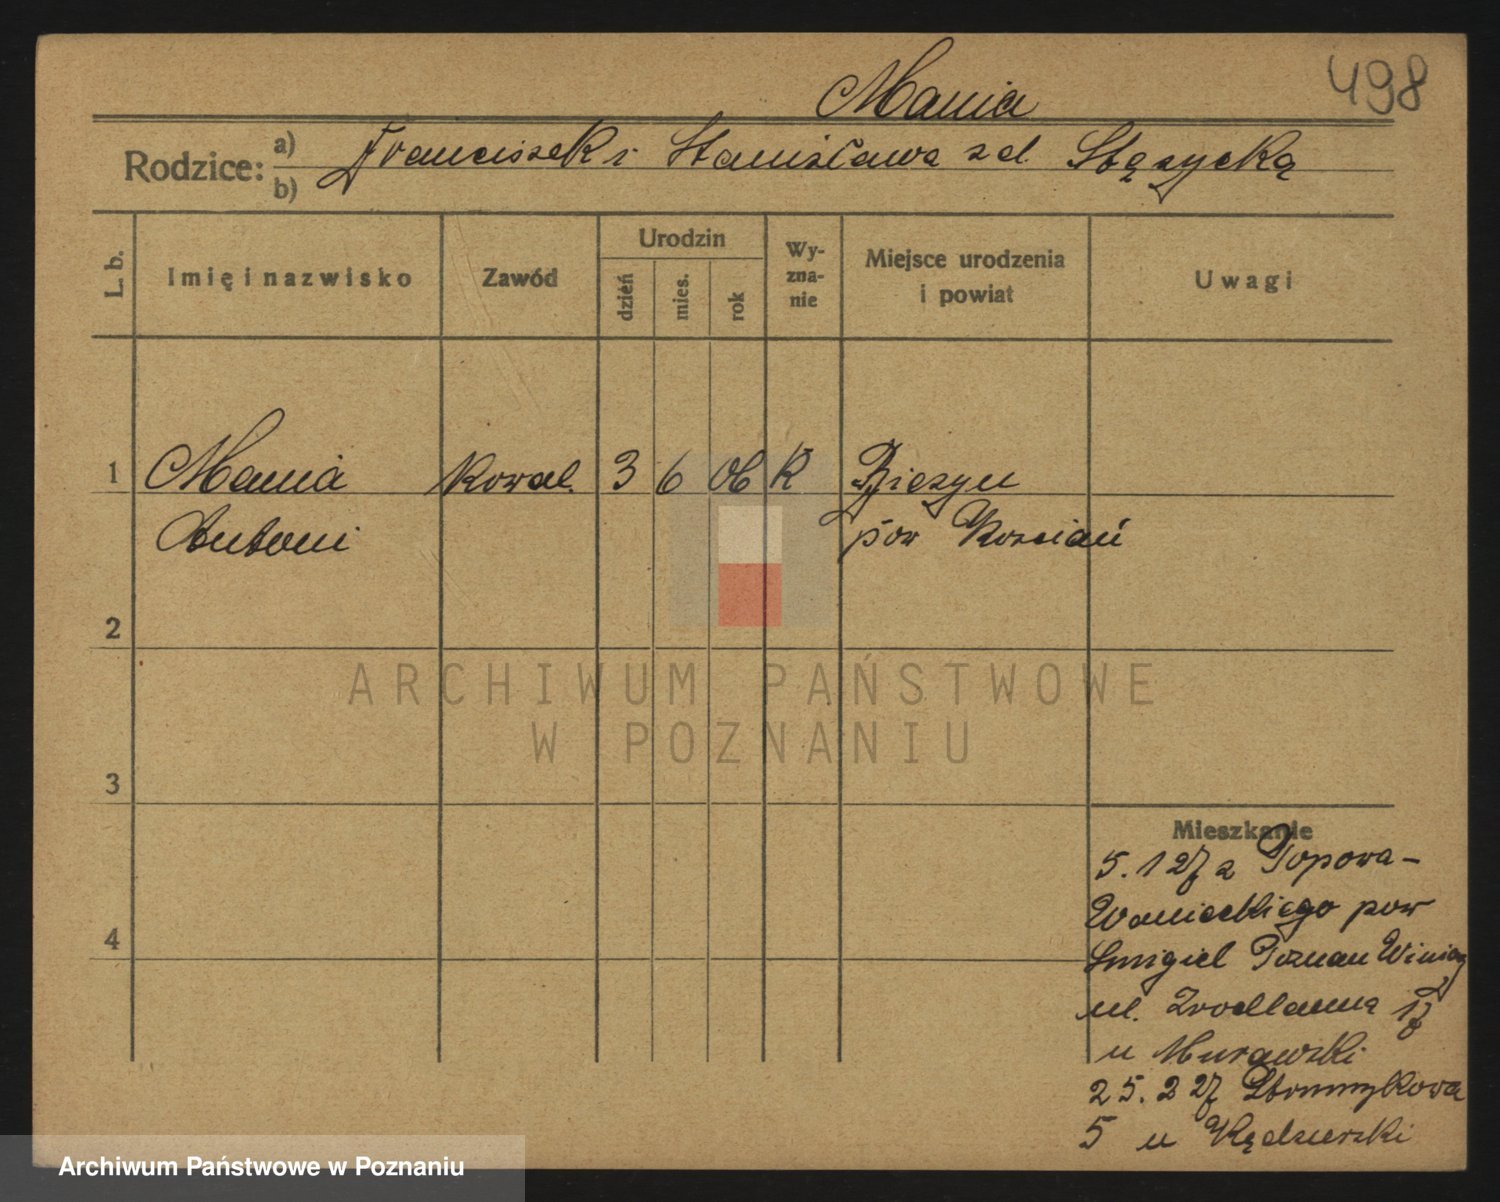 498
Mania
Rodzice: a) Franciszek i Stanisława z d. Stęszycką
b)
L. b. Imię i nazwisko Zawód Urodzin dzień mies. rok Wyzna-nie Miejsce urodzenia i powiat Uwagi
1 Mania Kowal. 3 6 06 K
Antoni pow Kościań
2
3
4
Mieszkanie
5. 1 27 z Popowa-
Wonieckiego pow
Smigiel Poznan Winiary
ul. Zrodlanna 17
u Murawski
25. 2 27
5 u Kędzierski
ARCHIWUM PAŃSTWOWE
W POZNANIU
Archiwum Państwowe w Poznaniu